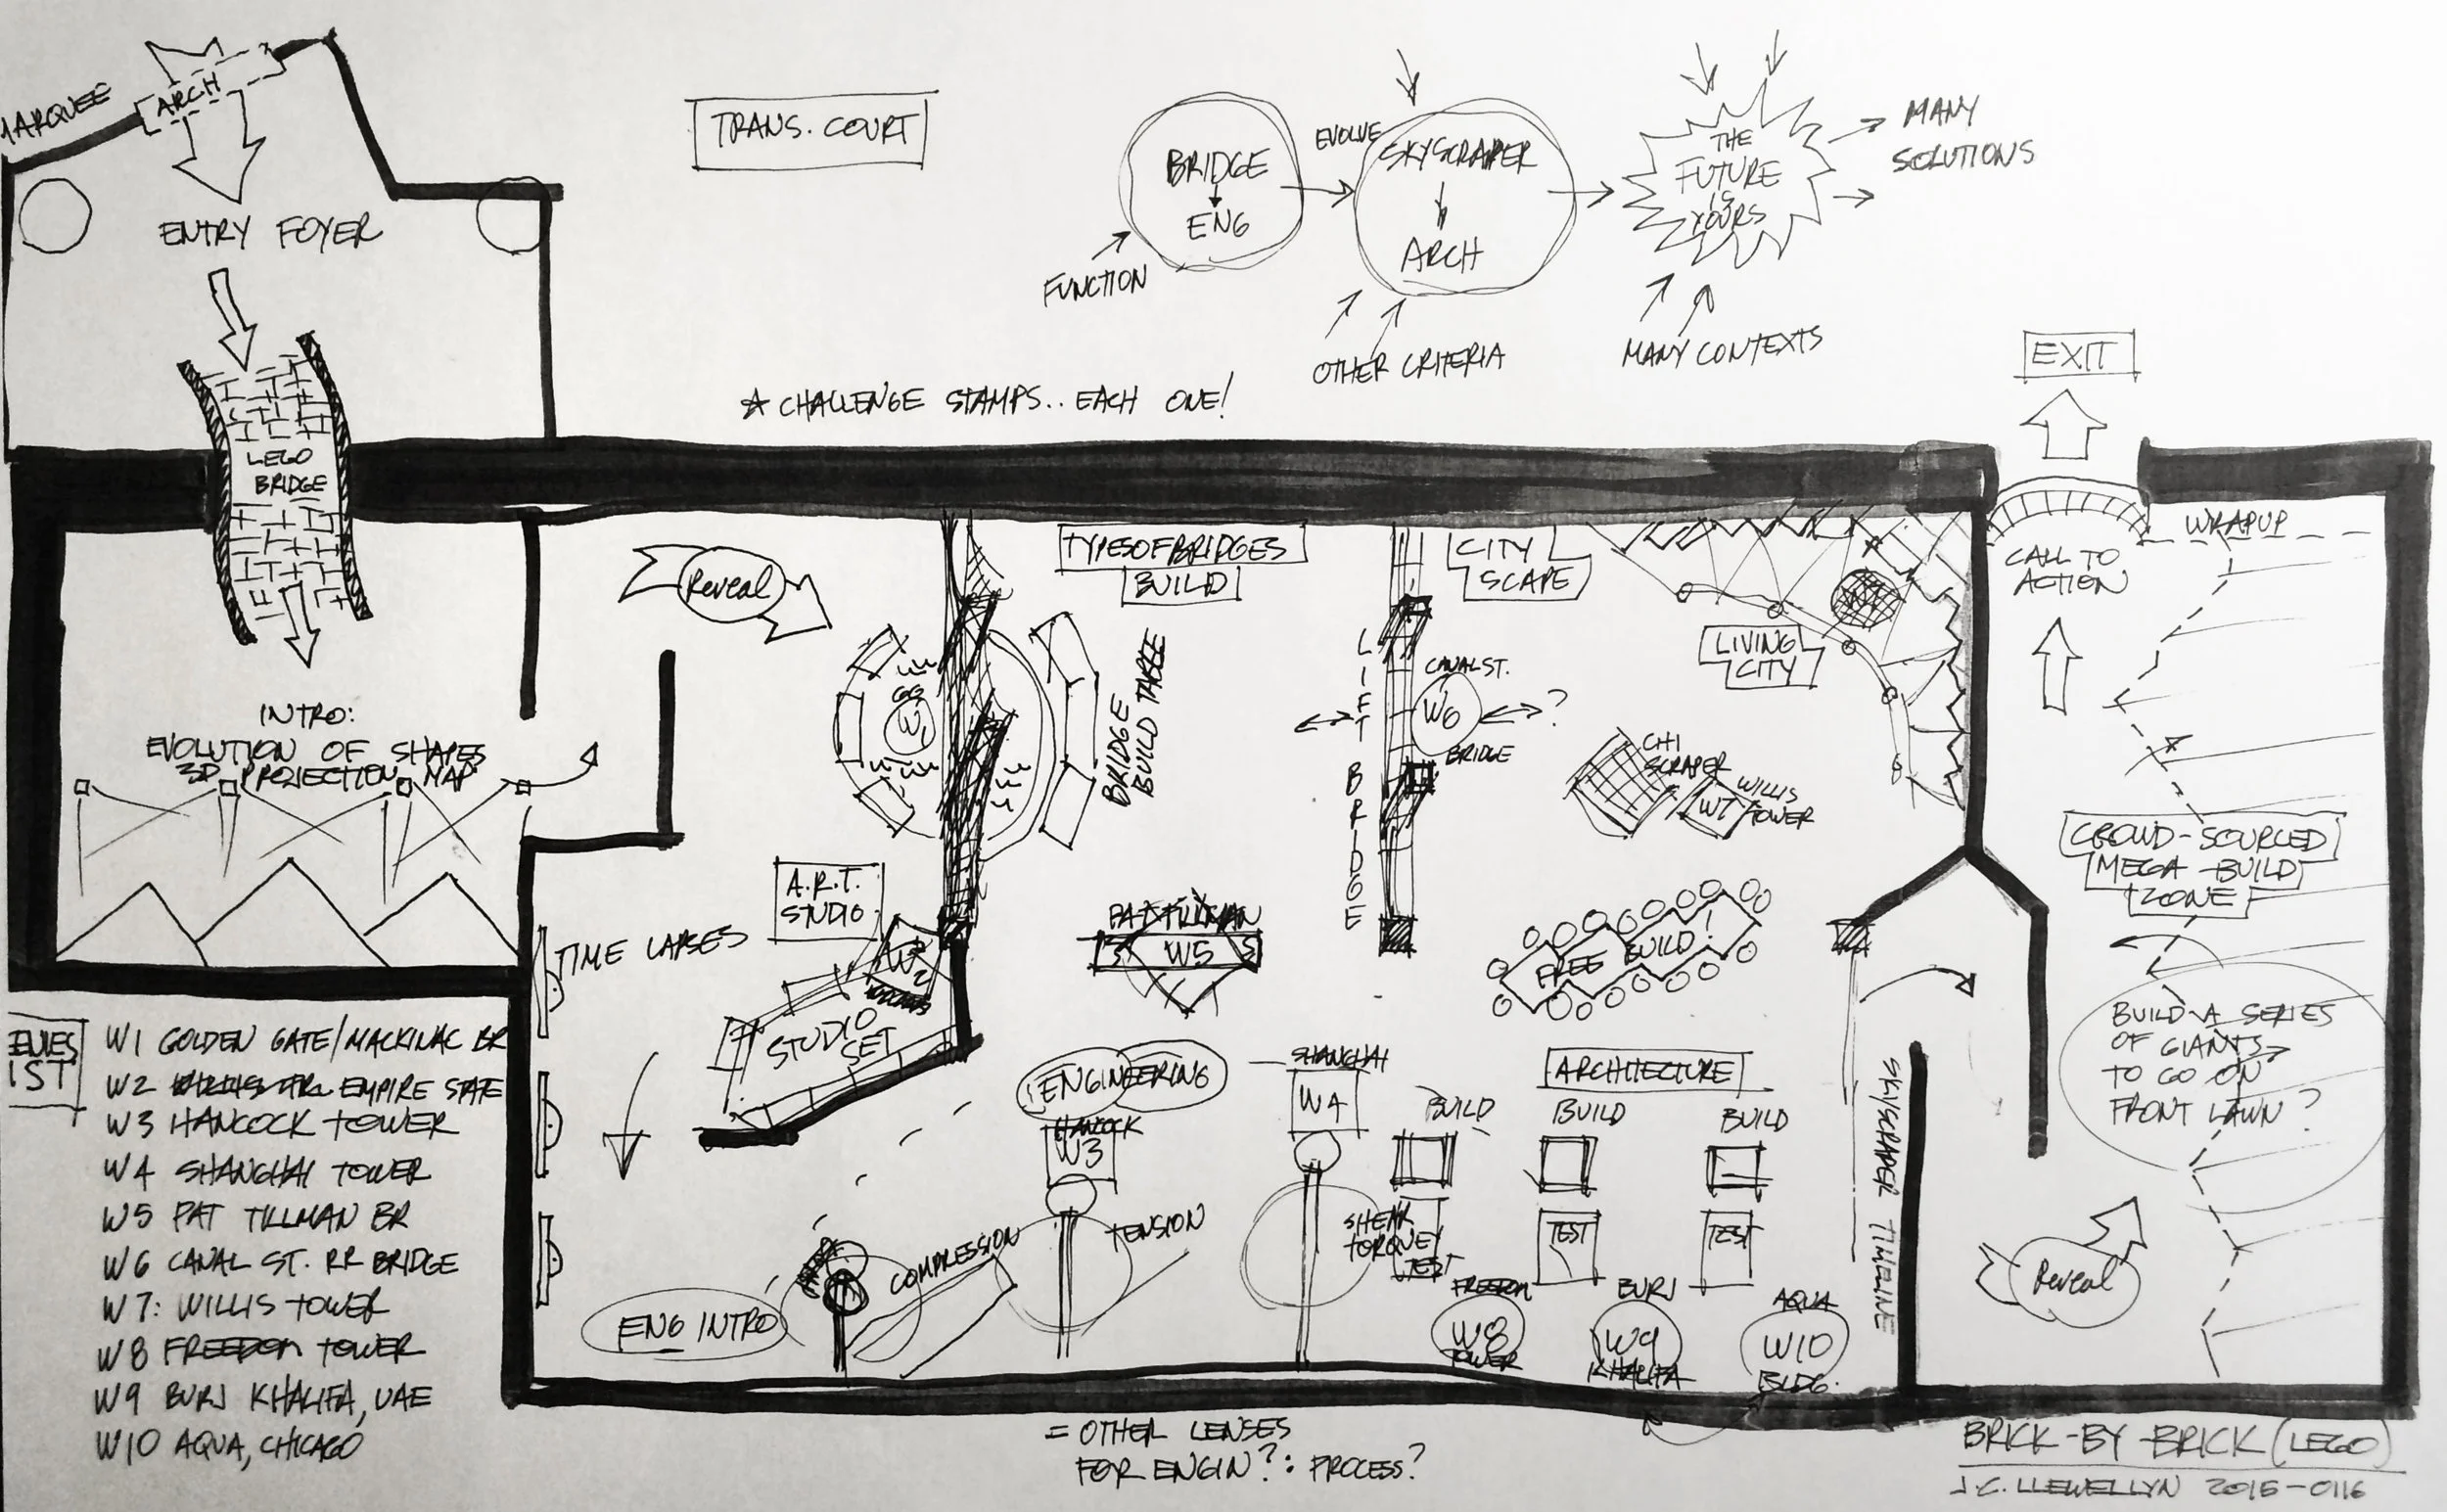 MARQUEE
ARCH
ENTRY FOYER
LEGO
BRIDGE
TRANS. COURT
BRIDGE
ENG
FUNCTION
EVOLVE
SKYSCRAPER
ARCH
OTHER CRITERIA
THE
FUTURE
IS
YOURS
MANY
SOLUTIONS
MANY CONTEXTS
☆ CHALLENGE STAMPS.. EACH ONE!
EXIT
INTRO:
EVOLUTION OF SHAPES
3D PROJECTION MAP
Reveal
GG
W1
TYPES OF BRIDGES
BUILD
BRIDGE
BUILD TABLE
LIFT BRIDGE
CITY
SCAPE
CANAL ST.
W6
BRIDGE
?
LIVING
CITY
CHI
SCRAPER
WILLIS
W7 TOWER
WRAPUP
CALL TO
ACTION
CROWD-SOURCED
MEGA-BUILD
ZONE
BUILD A SERIES
OF GIANTS
TO GO ON
FRONT LAWN?
Reveal
A.R.T.
STUDIO
TIME LAPSES
W2
STUDIO
SET
PAT TILLMAN
W5
FREE BUILD!
ENGINEERING
HANCOCK
W3
SHANGHAI
W4
ARCHITECTURE
BUILD
BUILD
BUILD
SHEAR
TORQUE
TEST
TEST
TEST
ENG INTRO
COMPRESSION
TENSION
FREEDOM
W8
TOWER
BURJ
W9
KHALIFA
AQUA
W10
BLDG.
SKYSCRAPER TIMELINE
IST
W1 GOLDEN GATE/MACKINAC BR
W2 EMPIRE STATE
W3 HANCOCK TOWER
W4 SHANGHAI TOWER
W5 PAT TILLMAN BR
W6 CANAL ST. RR BRIDGE
W7: WILLIS TOWER
W8 FREEDOM TOWER
W9 BURJ KHALIFA, UAE
W10 AQUA, CHICAGO
= OTHER LENSES
FOR ENGIN?: PROCESS?
BRICK-BY-BRICK (LEGO)
J.C. LLEWELLYN 2015-0116